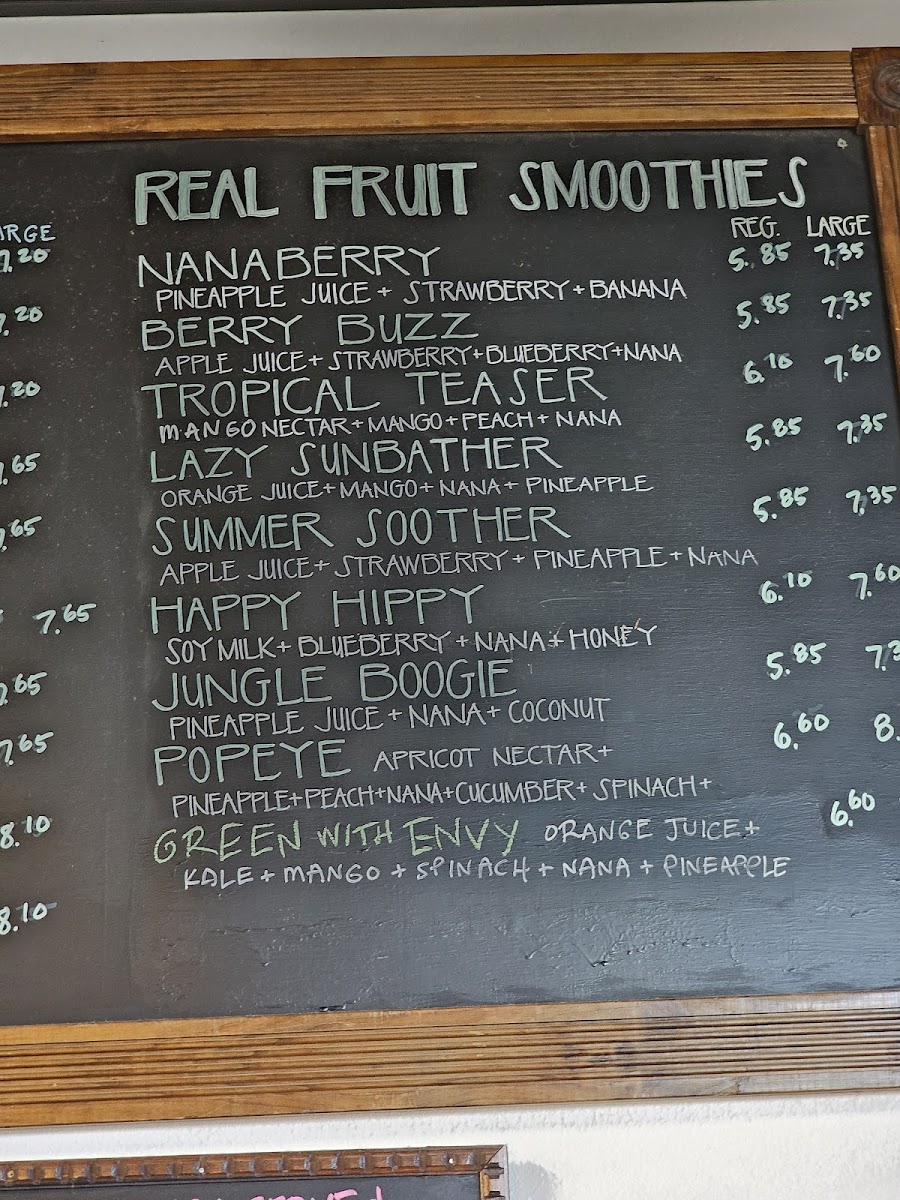 REAL FRUIT SMOOTHIES
REG. LARGE
NANABERRY 5.85 7.35
PINEAPPLE JUICE + STRAWBERRY + BANANA
BERRY BUZZ 5.85 7.35
APPLE JUICE + STRAWBERRY + BLUEBERRY + NANA
TROPICAL TEASER 6.10 7.60
MANGO NECTAR + MANGO + PEACH + NANA
LAZY SUNBATHER 5.85 7.35
ORANGE JUICE + MANGO + NANA + PINEAPPLE
SUMMER SOOTHER 5.85 7.35
APPLE JUICE + STRAWBERRY + PINEAPPLE + NANA
HAPPY HIPPY 6.10 7.60
SOY MILK + BLUEBERRY + NANA + HONEY
JUNGLE BOOGIE 5.85 7.3
PINEAPPLE JUICE + NANA + COCONUT
POPEYE APRICOT NECTAR + 6.60 8.
PINEAPPLE + PEACH + NANA + CUCUMBER + SPINACH +
GREEN WITH ENVY ORANGE JUICE + 6.60
KALE + MANGO + SPINACH + NANA + PINEAPPLE
ARGE
7.20
.20
.20
.65
.65
7.65
.65
7.65
8.10
8.10